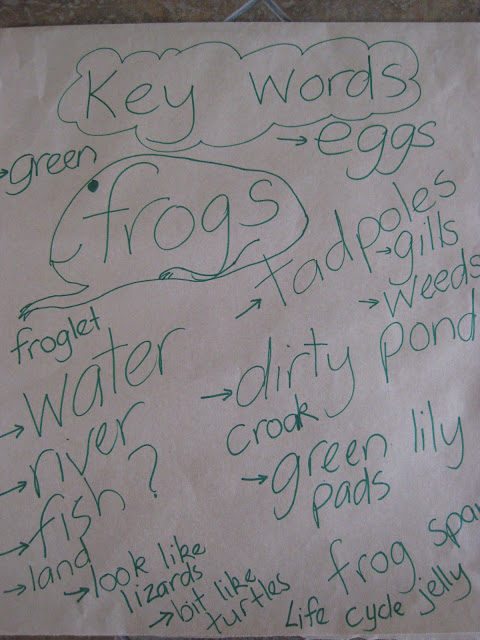 Key Words
→ eggs
→ green
frogs
→ tadpoles
→ gills
→ weeds
froglet
→ water
→ dirty pond
croak
→ river
→ green lily
pads
→ fish?
→ land
→ look like
lizards
→ bit like
turtles
frog spa
Life cycle jelly